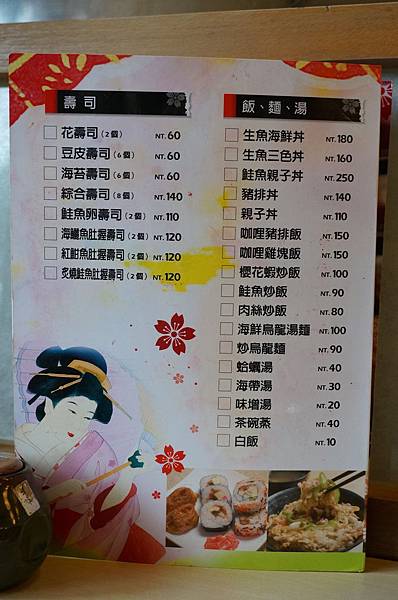 壽司
花壽司(2個) NT.60
豆皮壽司(6個) NT.60
海苔壽司(6個) NT.60
綜合壽司(8個) NT.140
鮭魚卵壽司(2個) NT.110
海鱺魚肚握壽司(2個) NT.120
紅魽魚肚握壽司(2個) NT.120
炙燒鮭魚肚握壽司(2個) NT.120
飯、麵、湯
生魚海鮮丼 NT.180
生魚三色丼 NT.160
鮭魚親子丼 NT.250
豬排丼 NT.140
親子丼 NT.110
咖哩豬排飯 NT.150
咖哩雞塊飯 NT.150
櫻花蝦炒飯 NT.100
鮭魚炒飯 NT.90
肉絲炒飯 NT.80
海鮮烏龍湯麵 NT.100
炒烏龍麵 NT.90
蛤蠣湯 NT.40
海帶湯 NT.30
味增湯 NT.20
茶碗蒸 NT.40
白飯 NT.10